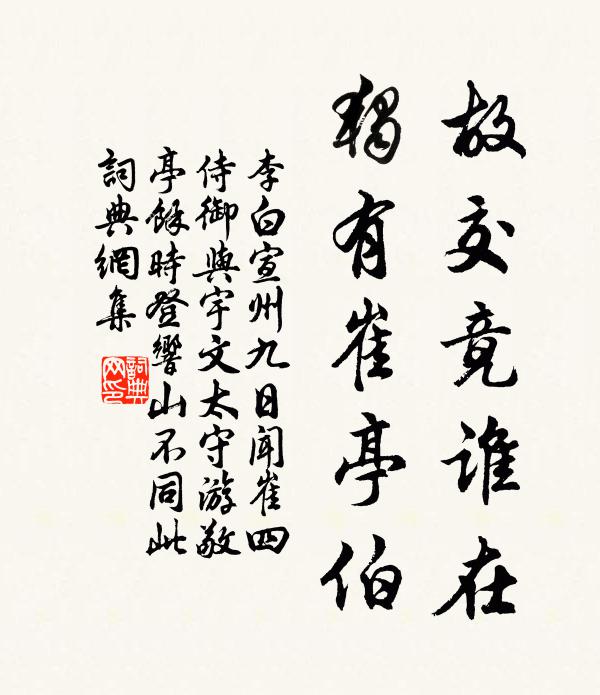 故交竟誰在
獨有崔亭伯
李白宣州九日聞崔四
侍御與宇文太守游敬
亭餘時登響山不同此
詞典網集
詞典网印